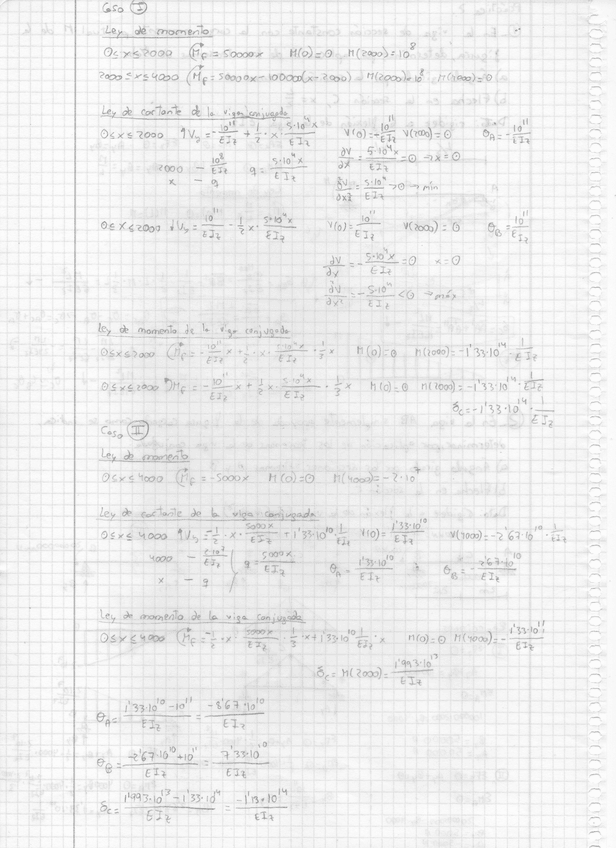 Caso I
Ley de momento
0≤x≤2000 Mf = 50000x M(0)=0 M(2000)=10^8
2000≤x≤4000 Mf = 50000x-100000(x-2000) M(2000)=10^8 M(4000)=0
Ley de cortante de la viga conjugada
0≤x≤2000 Vy = -10^11/EIz + 1/2 · x · 5·10^4x/EIz V(0)=-10^11/EIz V(2000)=0 θA=-10^11/EIz
2000 — 10^8/EIz q = 5·10^4x/EIz ∂V/∂x = 5·10^4x/EIz = 0 → x=0
x — q
∂²V/∂x² = 5·10^4/EIz > 0 → mín
0≤x≤2000 Vy = 10^11/EIz - 1/2 x · 5·10^4x/EIz V(0)=10^11/EIz V(2000)=0 θB=10^11/EIz
∂V/∂x = -5·10^4x/EIz = 0 x=0
∂²V/∂x² = -5·10^4/EIz < 0 → máx
Ley de momento de la viga conjugada
0≤x≤2000 Mf = -10^11/EIz x + 1/2 · x · 5·10^4x/EIz · 1/3 x M(0)=0 M(2000)=-1'33·10^14 · 1/EIz
0≤x≤2000 Mf = -10^11/EIz x + 1/2 x · 5·10^4x/EIz · 1/3 x M(0)=0 M(2000)=-1'33·10^14 · 1/EIz
δc=-1'33·10^14 · 1/EIz
Caso II
Ley de momento
0≤x≤4000 Mf = -5000x M(0)=0 M(4000)=-2·10^7
Ley de cortante de la viga conjugada
0≤x≤4000 Vy = -1/2 · x · 5000x/EIz + 1'33·10^10 1/EIz V(0)=1'33·10^10/EIz V(4000)=-2'67·10^10 · 1/EIz
4000 — 2·10^7/EIz q = 5000x/EIz θA = 1'33·10^10/EIz ; θB = -2'67·10^10/EIz
x — q
Ley de momento de la viga conjugada
0≤x≤4000 Mf = -1/2 · x · 5000x/EIz · 1/3 · x + 1'33·10^10 1/EIz · x M(0)=0 M(4000)=-1'33·10^11/EIz
δc = M(2000) = 1'993·10^13/EIz
θA = 1'33·10^10 - 10^11/EIz = -8'67·10^10/EIz
θB = -2'67·10^10 + 10^11/EIz = 7'33·10^10/EIz
δc = 1'993·10^13 - 1'33·10^14/EIz = -1'13·10^14/EIz